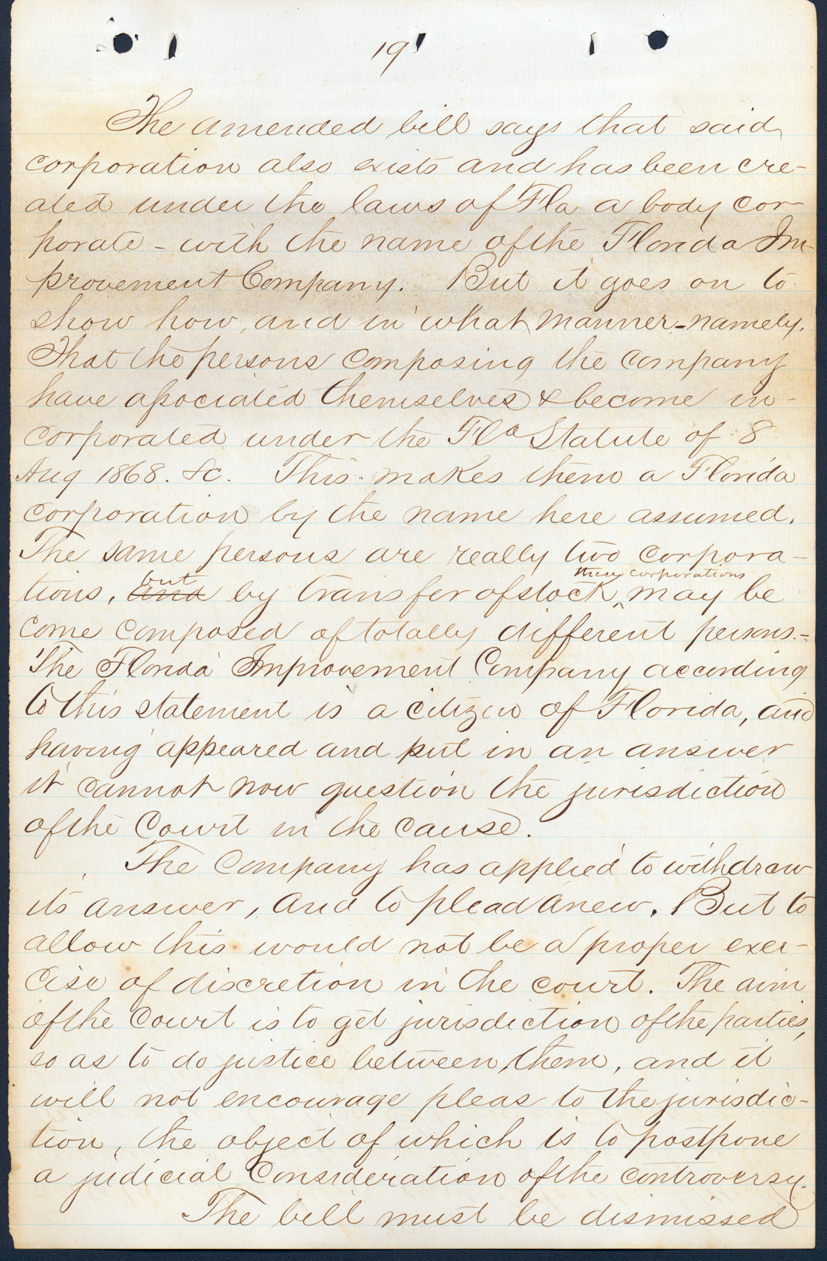 19
The amended bill says that said
corporation also exists and has been cre-
ated under the laws of Fla a body cor-
porate - with the name of the Florida Im-
provement Company. But it goes on to
show how, and in what manner - namely.
That the persons composing the company
have associated themselves & become in-
corporated under the Fla Statute of 8
Aug 1868. &c. This makes them a Florida
corporation by the name here assumed.
The same persons are really two corpora-
but corporations
tions, and by transfer of stock ^ may be
come composed of totally different persons.-
The Florida Improvement Company according
to this statement is a citizen of Florida, and
having appeared and put in an answer
it cannot now question the jurisdiction
of the Court in the cause.
The Company has applied to withdraw
its answer, and to plead anew. But to
allow this would not be a proper exer-
cise of discretion in the court. The aim
of the Court is to get jurisdiction of the parties,
so as to do justice between them, and it
will not encourage pleas to the jurisdic-
tion, the object of which is to postpone
a judicial consideration of the controversy.
The bill must be dismissed